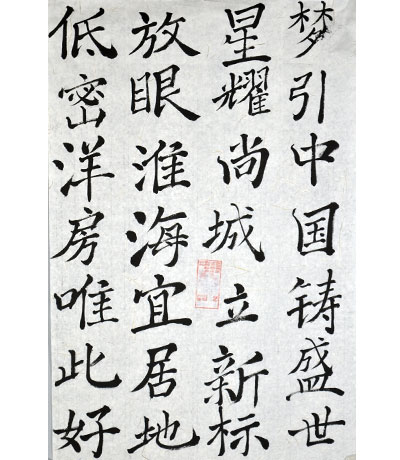 梦引中国铸盛世
星耀尚城立新标
放眼淮海宜居地
低密洋房唯此好